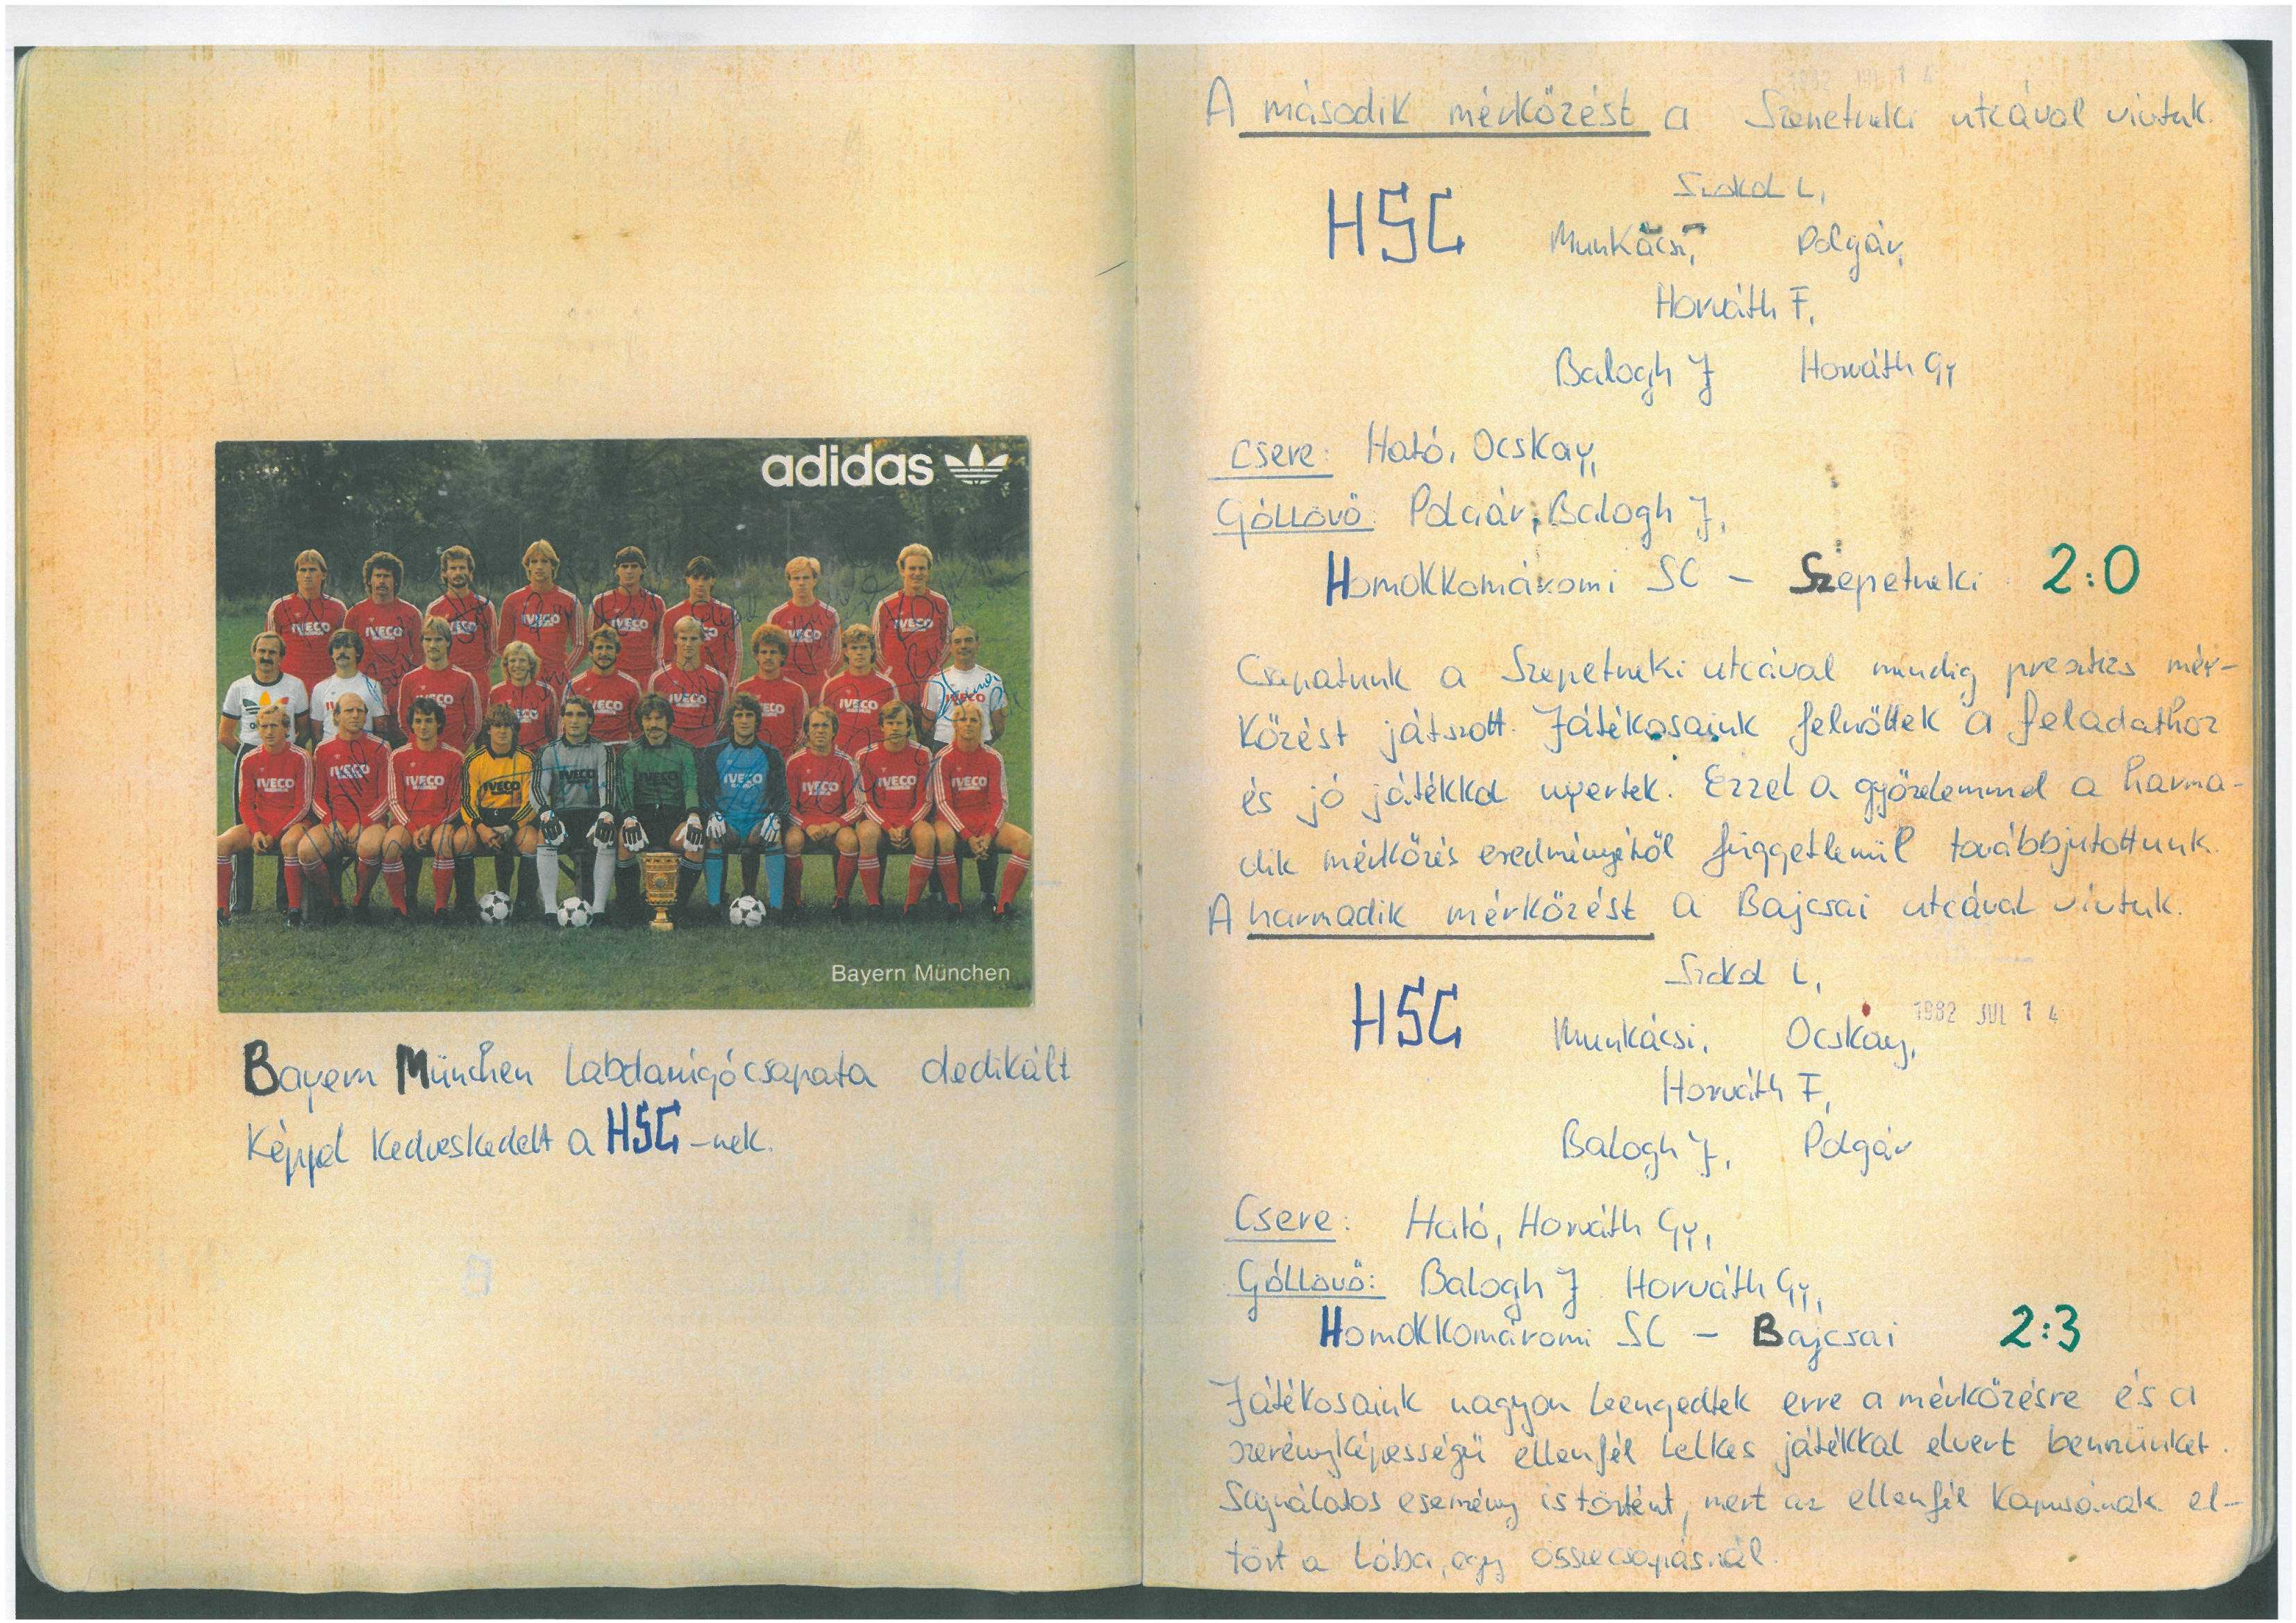 adidas
IVECO
Bayern München
Bayern München labdarúgócsapata dedikált
képpel kedveskedett a HSC-nek.
1982 JUL 14
A második mérkőzést a Szepetneki utcával vívtuk.
HSC
L,
Munkácsi, Polgár,
Horváth F,
Balogh J Horváth Gy
Csere: Ható, Ocskay,
Góllövő: Polgár, Balogh J,
Homokkomáromi SC – Szepetneki 2:0
Csapatunk a Szepetneki utcával mindig presztizs mér-
kőzést játszott. Játékosaink felnőttek a feladathoz
és jó játékkal nyertek. Ezzel a győzelemmel a harma-
dik mérkőzés eredményétől függetlenül továbbjutottunk.
A harmadik mérkőzést a Bajcsai utcával vívtuk.
L,
HSC
1982 JUL 14
Munkácsi, Ocskay,
Horváth F,
Balogh J, Polgár
Csere: Ható, Horváth Gy,
Góllövő: Balogh J Horváth Gy,
Homokkomáromi SC – Bajcsai 2:3
Játékosaink nagyon leengedtek erre a mérkőzésre és a
szerényképességű ellenfél lelkes játékkal elvert bennünket.
Sajnálatos esemény is történt, mert az ellenfél kapusának el-
tört a lába, egy összecsapásnál.